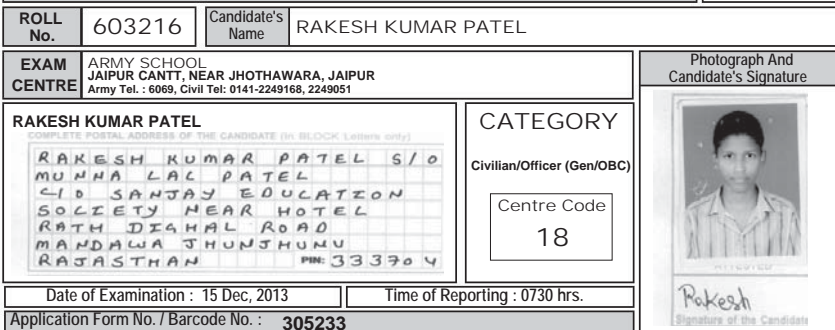 ROLL No. 603216 Candidate's Name RAKESH KUMAR PATEL
EXAM CENTRE
ARMY SCHOOL
JAIPUR CANTT, NEAR JHOTHAWARA, JAIPUR
Army Tel. : 6069, Civil Tel: 0141-2249168, 2249051
Photograph And
Candidate's Signature
RAKESH KUMAR PATEL
COMPLETE POSTAL ADDRESS OF THE CANDIDATE (in BLOCK Letters only)
RAKESH KUMAR PATEL S/O
MUNNA LAC PATEL
C/O SANJAY EDUCATION
SOCIETY NEAR HOTEL
RATH DIGHAL ROAD
MANDAWA JHUNJHUNU
RAJASTHAN PIN: 333704
CATEGORY
Civilian/Officer (Gen/OBC)
Centre Code
18
ATTESTED
Rakesh
Signature of the Candidate
Date of Examination : 15 Dec, 2013 Time of Reporting : 0730 hrs.
Application Form No. / Barcode No. : 305233